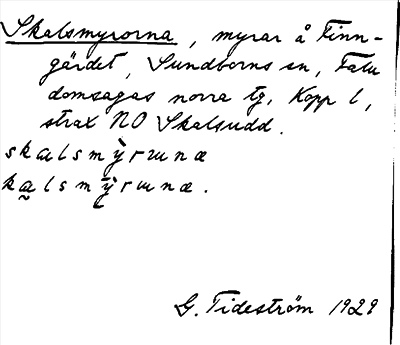 Skalsmyrorna, myrar å Finn-
gärdet, Sundborns sn, Falu
domsagas norra tg, Kopp l,
strax NO Skalsudd.
skalsmỳrɯnæ
ka̰lsmỳ̰rɯnæ.
G. Tideström 1929